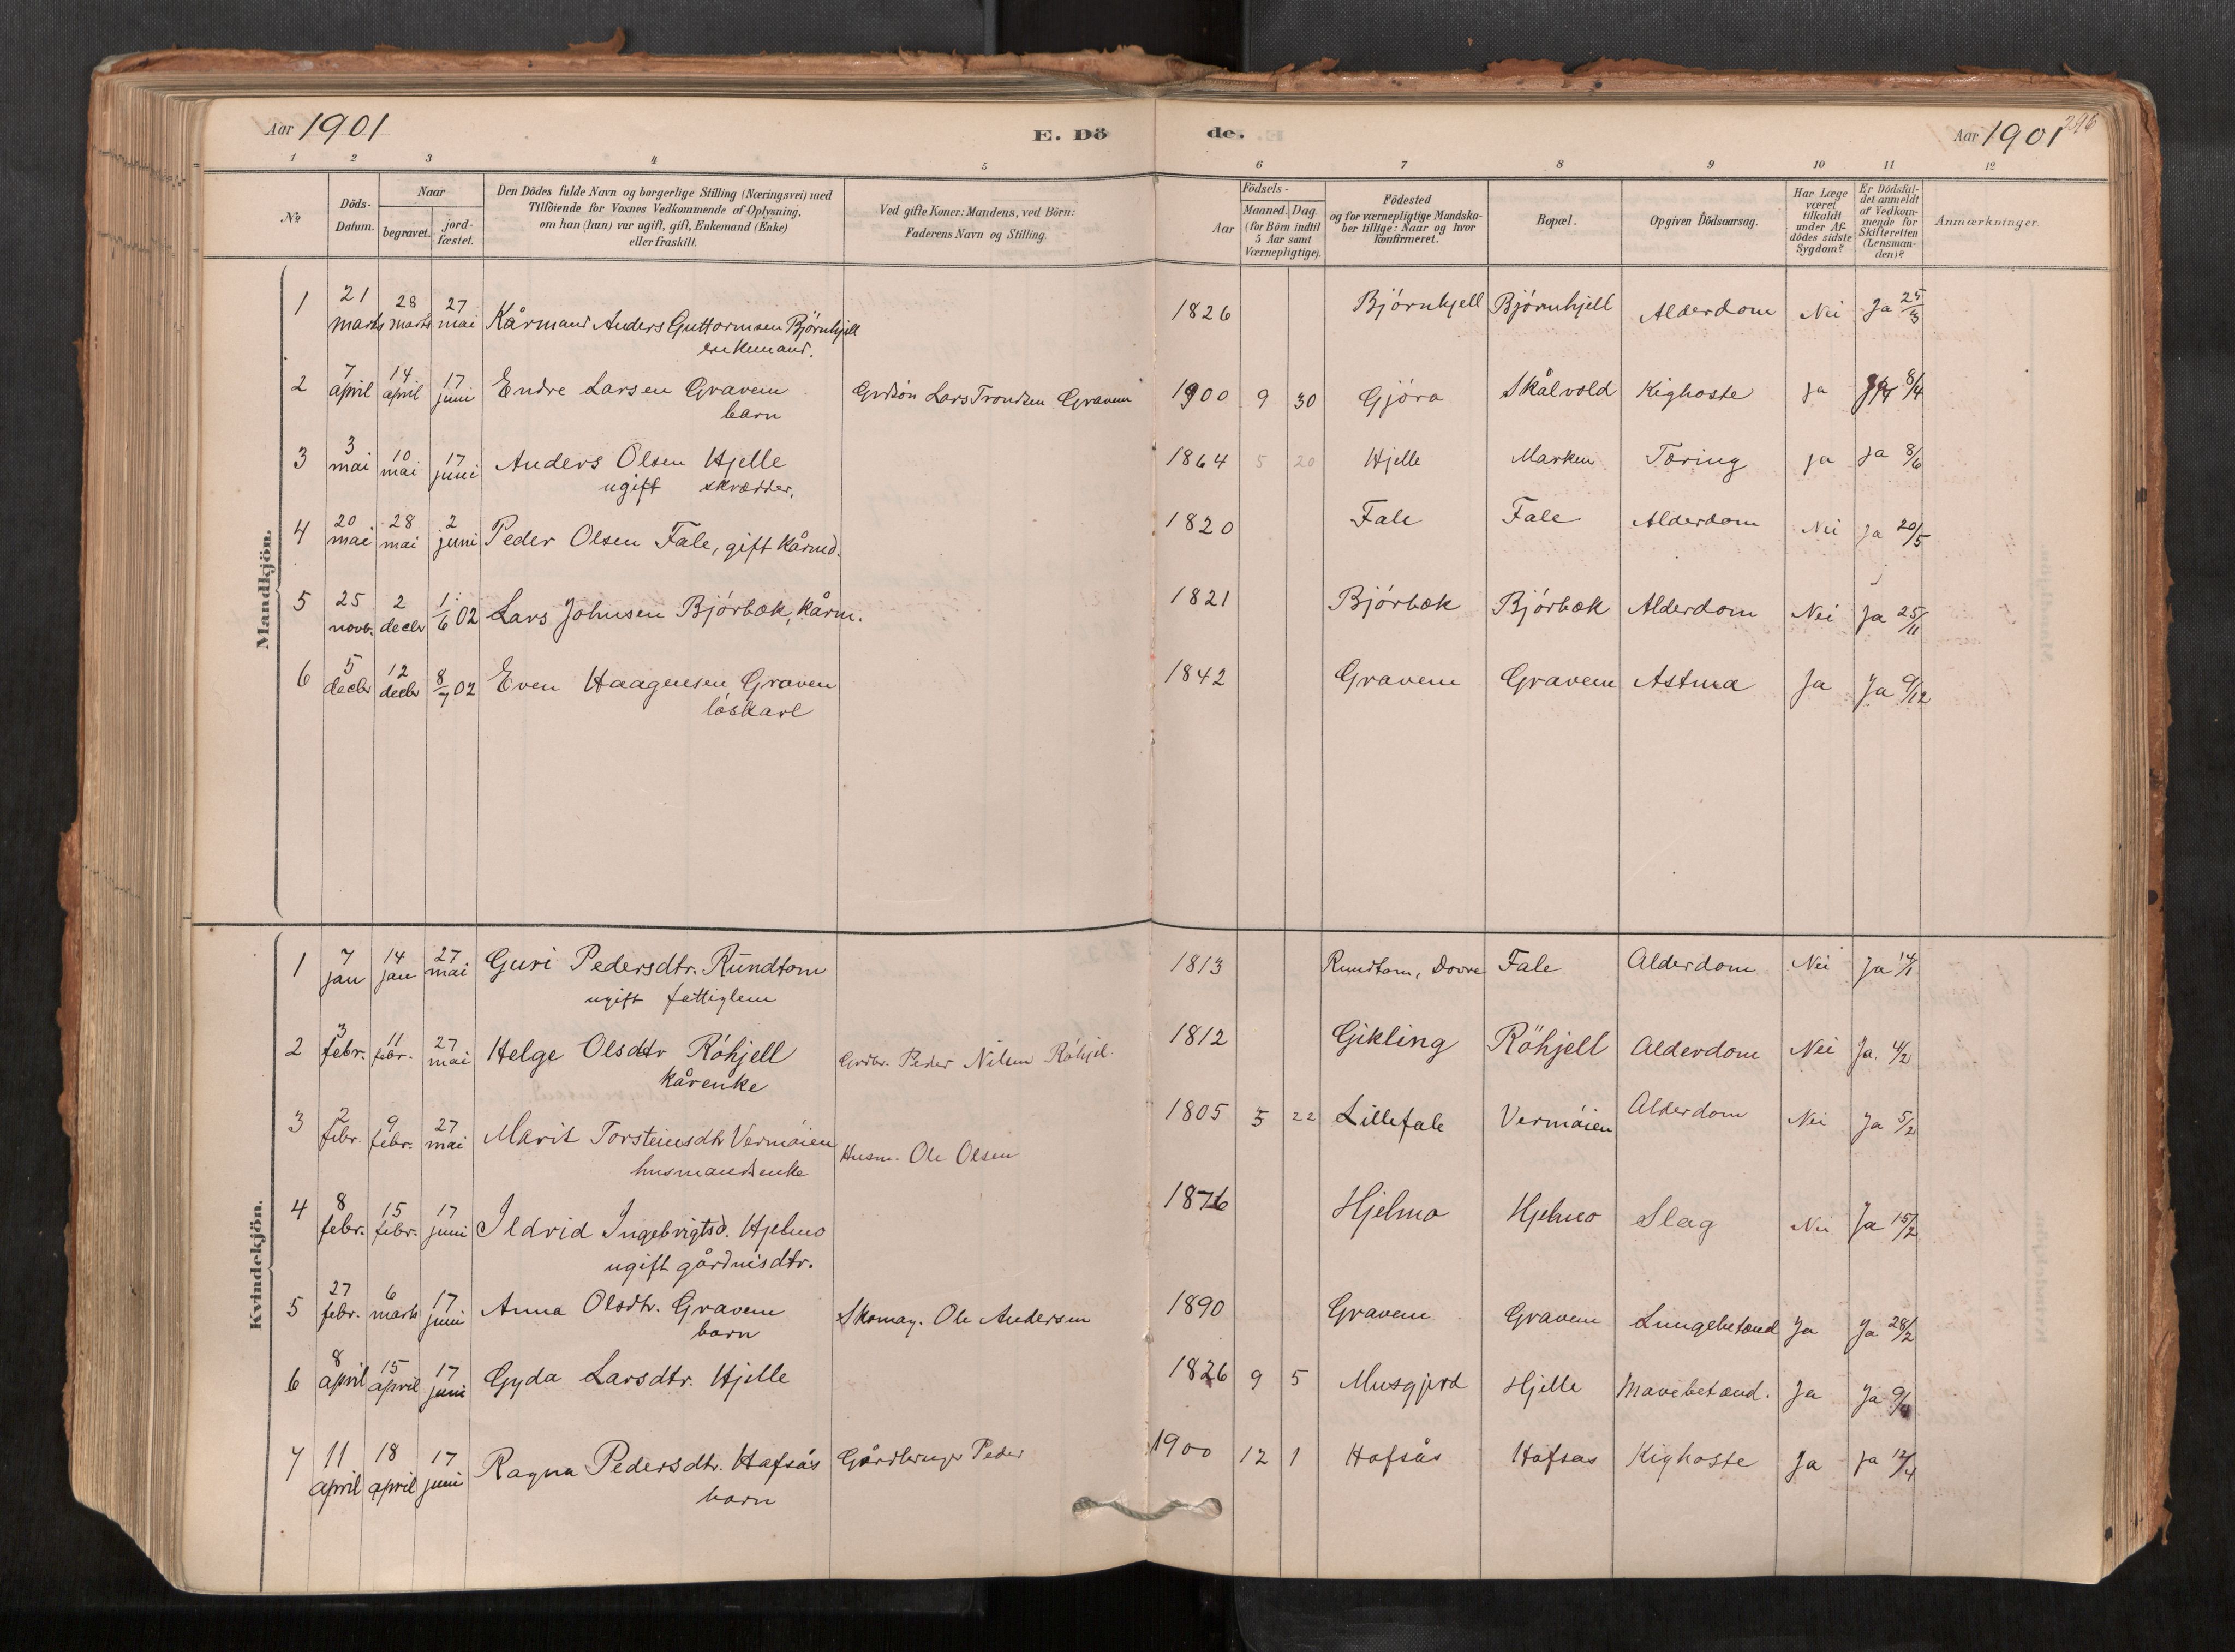 Aar 1901
E. Dö
de.
Aar 1901
296
1 2 3 4 5 6 7 8 9 10 11 12
No
Döds-Datum.
Naar
begravet.
jord-fæstet.
Den Dödes fulde Navn og borgerlige Stilling (Næringsvei) med
Tilföiende for Voxnes Vedkommende af Oplysning,
om han (hun) var ugift, gift, Enkemand (Enke)
eller fraskilt.
Ved gifte Koner: Mandens, ved Börn:
Faderens Navn og Stilling.
Födsels-
Aar
Maaned. Dag.
(for Börn indtil
5 Aar samt
Værnepligtige).
Födested
og for værnepligtige Mandska-
ber tillige: Naar og hvor
konfirmeret.
Bopæl.
Opgiven Dödsaarsag.
Har Læge
været
tilkaldt
under Af-
dödes sidste
Sygdom?
Er Dödsfal-
det anmeldt
af Vedkom-
mende for
Skifteretten
(Lensman-
den)?
Anmærkninger.
Mandkjön.
1 21 marts 28 marts 27 mai Kårmand Anders Guttormsen Björnhjell 1826 Björnhjell Björnhjell Alderdom Nei Ja 25/3
enkemand.
2 7 april 14 april 17 juni Endre Larsen Gravem Grdsön Lars Trondsen Gravem 1900 9 30 Gjöra Skålvold Kighoste Ja Ja 8/4
barn
3 3 mai 10 mai 17 juni Anders Olsen Hjelle 1864 5 20 Hjelle Marken Tæring ja ja 8/6
ugift skrædder.
4 20 mai 28 mai 2 juni Peder Olsen Fale, gift kårmd. 1820 Fale Fale Alderdom Nei Ja 20/5
5 25 novb. 2 decbr 1/6 02 Lars Johnsen Björbæk, kårm. 1821 Björbæk Björbæk Alderdom Nei Ja 25/11
6 5 decbr 12 decbr 8/7 02 Even Haagensen Graven 1842 Gravem Gravem Astma Ja Ja 9/12
löskarl
Kvindekjön.
1 7 jan 14 jan 27 mai Guri Pedersdtr. Rundtom 1813 Rundtom, Dovre Fale Alderdom Nei Ja 14/1
ugift fattiglem
2 3 febr. 11 febr. 27 mai Helge Olsdtr Röhjell Grdbr. Peder Nilsen Röhjel. 1812 Gikling Röhjell Alderdom Nei Ja. 4/2
kårenke
3 2 febr. 9 febr. 27 mai Marit Torsteinsdtr Vermöien Husm. Ole Olsen 1805 5 22 Lillefale Vermöien Alderdom Nei Ja 5/2
husmandsenke
4 8 febr. 15 febr. 17 juni Ildrid Ingebrigtsd. Hjelmo 1876 Hjelmo Hjelmo Slag Nei Ja 15/2
ugift gårdmsdtr.
5 27 febr. 6 marts 17 juni Anna Olsdtr. Gravem Skomag. Ole Andersen 1890 Gravem Gravem Lungebetænd Ja Ja 28/2
barn
6 8 april 15 april 17 juni Gyda Larsdtr. Hjelle 1826 9 5 Musgjerd Hjelle Mavebetænd. Ja Ja 9/4
7 11 april 18 april 17 juni Ragna Pedersdtr. Hafsås Gårdbruger Peder 1900 12 1 Hafsås Hafsås Kighoste Ja Ja 12/4
barn